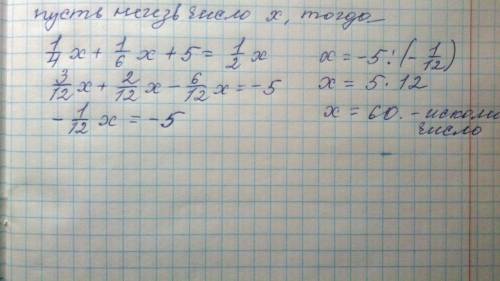 пусть неизв число x, тогда
1/4 x + 1/6 x + 5 = 1/2 x
3/12 x + 2/12 x - 6/12 x = -5
- 1/12 x = -5
x = -5 : (- 1/12)
x = 5 · 12
x = 60. - иском
число